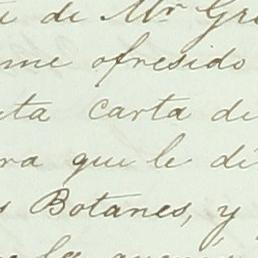 de Mr Gr
me ofresido
ta carta de
ra que le di
s Botanes, y